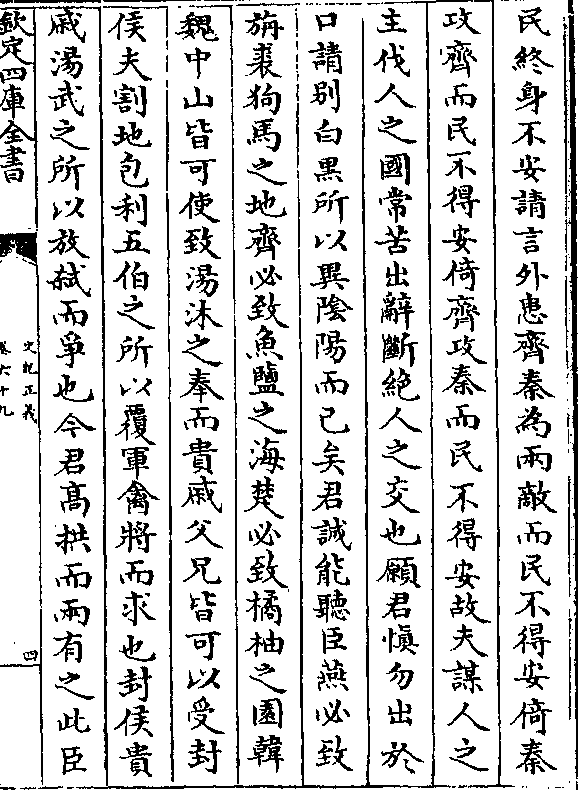 民終身不安請言外患齊秦為兩敵而民不得安倚秦
攻齊而民不得安倚齊攻秦而民不得安故夫謀人之
主伐人之國常苦出辭斷絕人之交也願君慎勿出於
口請別白黑所以異隂陽而已矣君誠能聽臣燕必致
旃裘狗馬之地齊必致魚鹽之海楚必致橘柚之園韓
魏中山皆可使致湯沐之奉而貴戚父兄皆可以受封
侯夫割地包利五伯之所以覆軍禽將而求也封侯貴
戚湯武之所以放弑而爭也今君髙拱而兩有之此臣
欽定四庫全書
史記正義
卷六十九
四